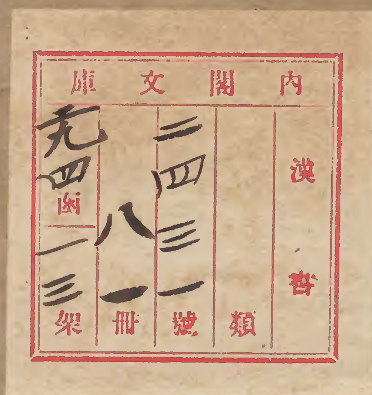 內閣文庫
漢書
類
二四三一號
八一冊
四函
一三架